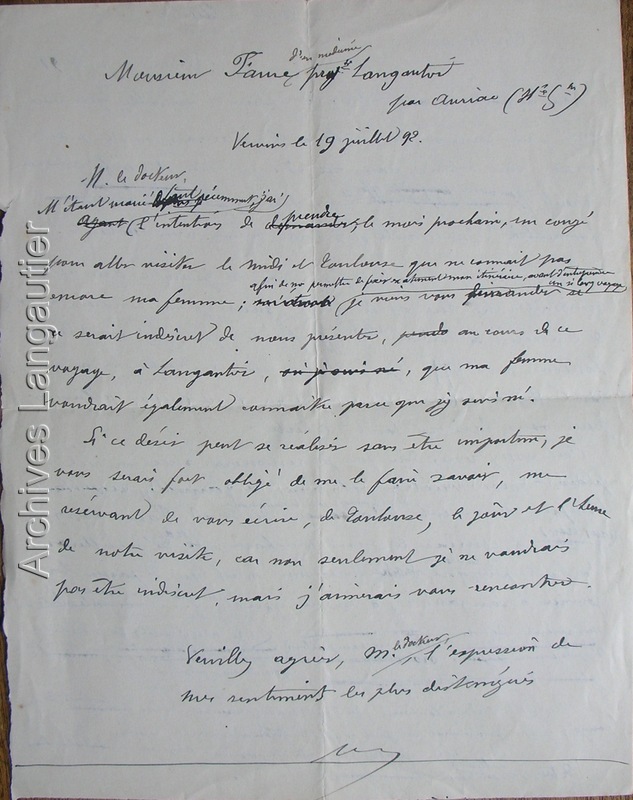 d'en médecine
Monsieur Faure propre Langautié
par Auriac (Hte Gne)
Vervins le 19 juillet 92.
M. le docteur,
M'étant marié tout récemment, j'ai
Ayant l'intention de demander prendre, le mois prochain, un congé
pour aller visiter le Midi et Toulouse que ne connait pas
afin de me permettre de fixer mon itinéraire, avant d'entreprendre un si long voyage
encore ma femme ; je viens vous demander si
ce serait indiscret de nous présenter, au cours de ce
voyage, à Langautié, où je suis né, que ma femme
voudrait également connaître parce que j'y suis né.
Si ce désir peut se réaliser sans être importun, je
vous serais fort obligé de me le faire savoir, me
réservant de vous écrire, de Toulouse, le jour et l'heure
de notre visite, car non seulement je ne voudrais
pas être indiscret, mais j'aimerais vous rencontrer.
Veuillez agréer, M. le docteur, l'expression de
mes sentiments les plus distingués
Archives Langautier